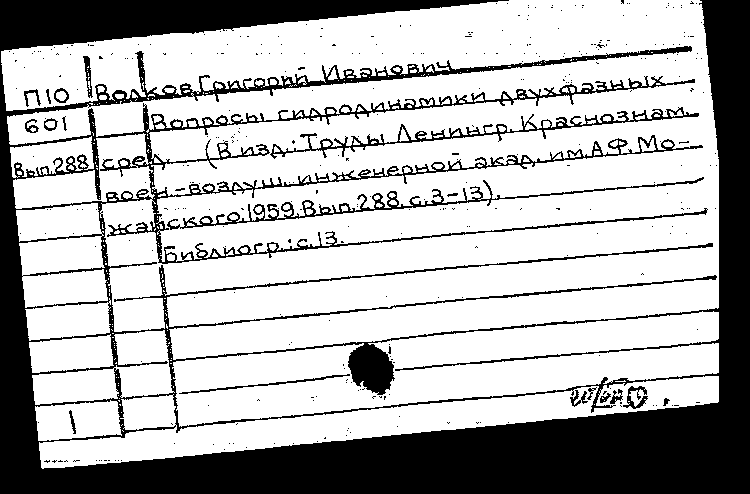 П10 Волков, Григорий Иванович
601 Вопросы гидродинамики двухфазных
Вып.288 сред. (В изд.: Труды Ленингр. Краснознам.
воен.-воздуш. инженерной акад. им. А.Ф. Мо-
жайского. 1959. Вып. 288. с. 3-13).
Библиогр.: с. 13.
1